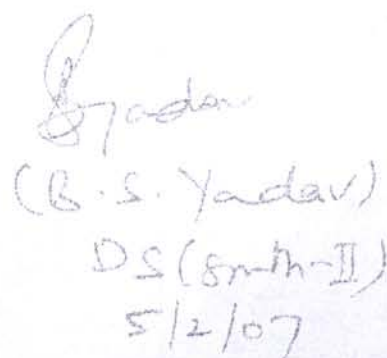 Byadav
(B.S. Yadav)
DS (Smith-II)
5/2/07